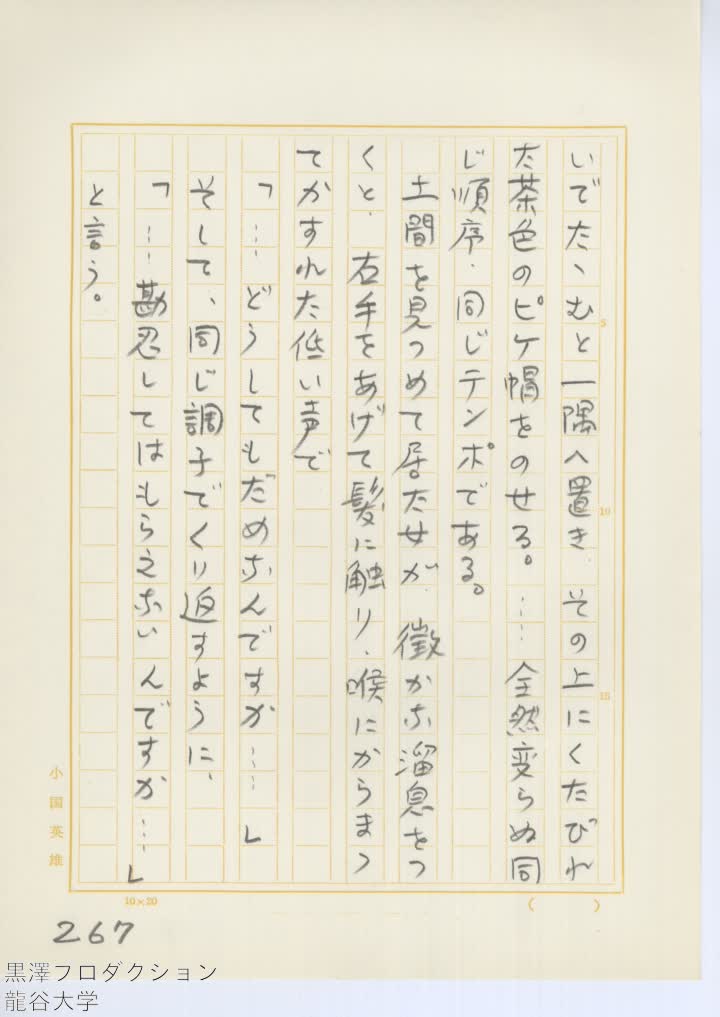 いでたゝむと一隅へ置き、その上にくたびれ
た茶色のピケ帽をのせる。……全然変らぬ同
じ順序、同じテンポである。
土間を見つめて居た女が、微かな溜息をつ
くと、右手をあげて髪に触り、喉にからまっ
てかすれた低い声で
「……どうしてもだめなんですか……」
そして、同じ調子でくり返すように、
「……勘忍してはもらえないんですか……」
と言う。
5
10
15
小国英雄
10×20
( )
267
黒澤プロダクション
龍谷大学